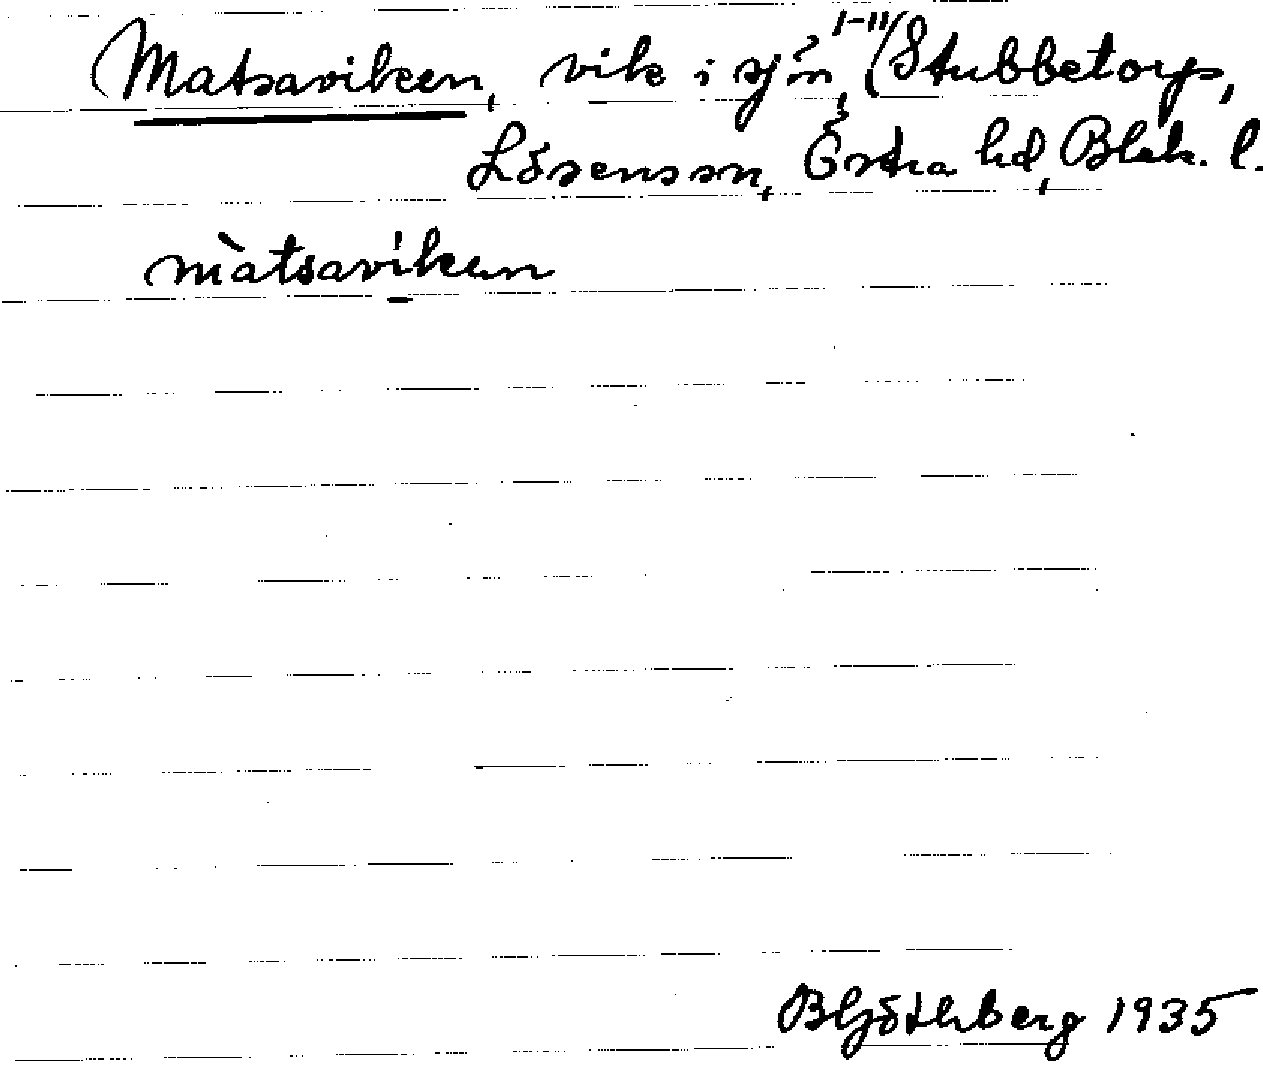 Matsaviken, vik i sjön, (Stubbetorp, 1-11
Lösens sn, Östra hd, Blek. l.
màtsavikən
BGöthberg 1935